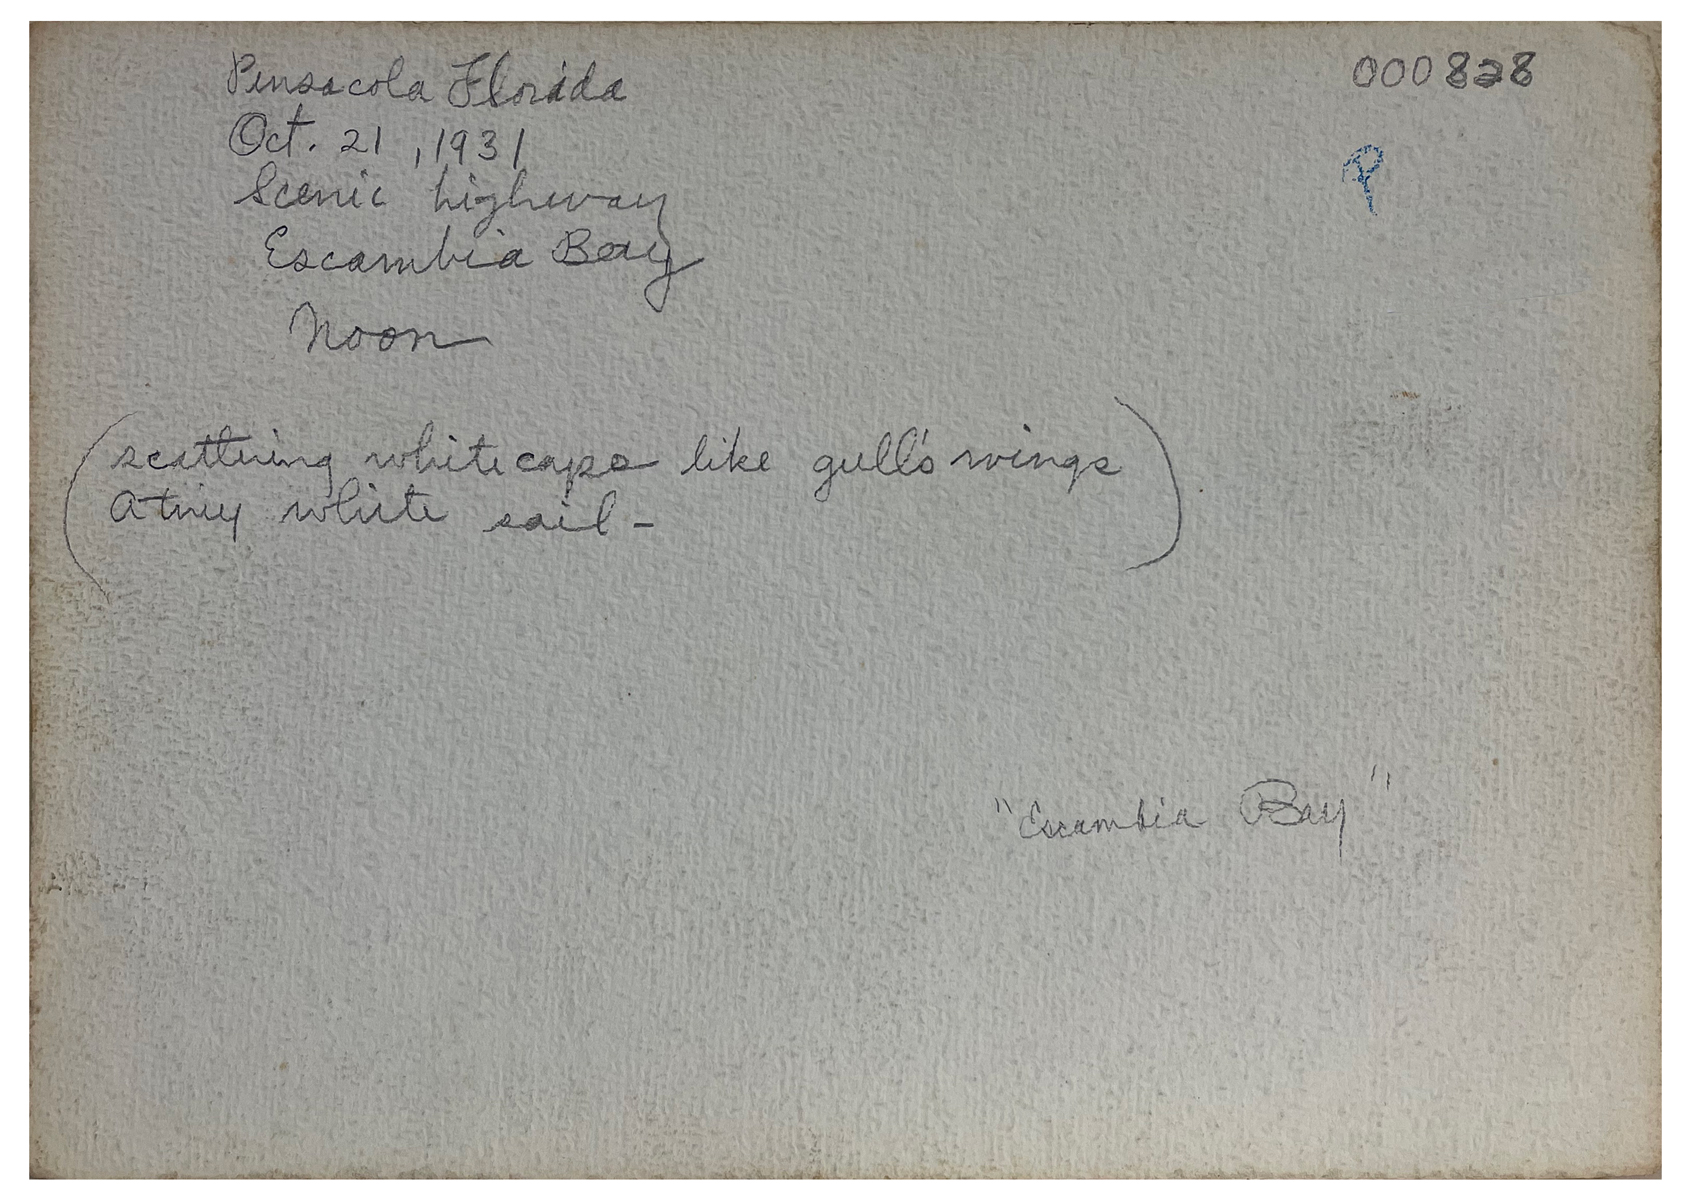 Pensacola Florida
000828
Oct. 21, 1931
P
Scenic highway
Escambia Bay
Noon
(scattering whitecaps like gull's wings
A tiny white sail-)
"Escambia Bay"